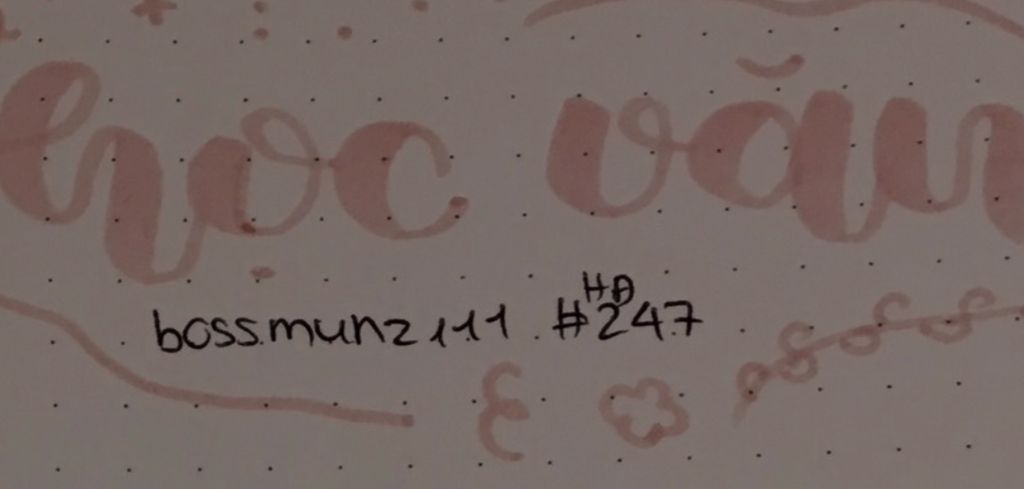 học văn
HD
bossmunz111 #247